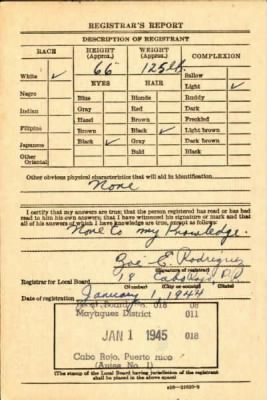 REGISTRAR'S REPORT
DESCRIPTION OF REGISTRANT
RACE HEIGHT (Approx.) WEIGHT (Approx.) COMPLEXION
66" 125 lb.
White ✓ Sallow
EYES HAIR Light ✓
Negro Blue Blonde Ruddy
Indian Gray Red Dark
Hazel Brown Freckled
Filipino Brown Black ✓ Light brown
Japanese Black ✓ Gray Dark brown
Other Oriental Bald Black
Other obvious physical characteristics that will aid in identification
None
I certify that my answers are true; that the person registered has read or has had
read to him his own answers; that I have witnessed his signature or mark and that
all of his answers of which I have knowledge are true, except as follows:
None to my Knowledge.
E. Rodriguez
(Signature of registrar)
Registrar for Local Board 18 Cabo Rojo P.R.
(Number) (City or county)
Date of registration January 1944
Local Board No. 018
Mayaguez District 011
JAN 1 1945 018
Cabo Rojo, Puerto Rico
(Annex No. 1)
(The stamp of the Local Board having jurisdiction of the registrant
shall be placed in the above space)